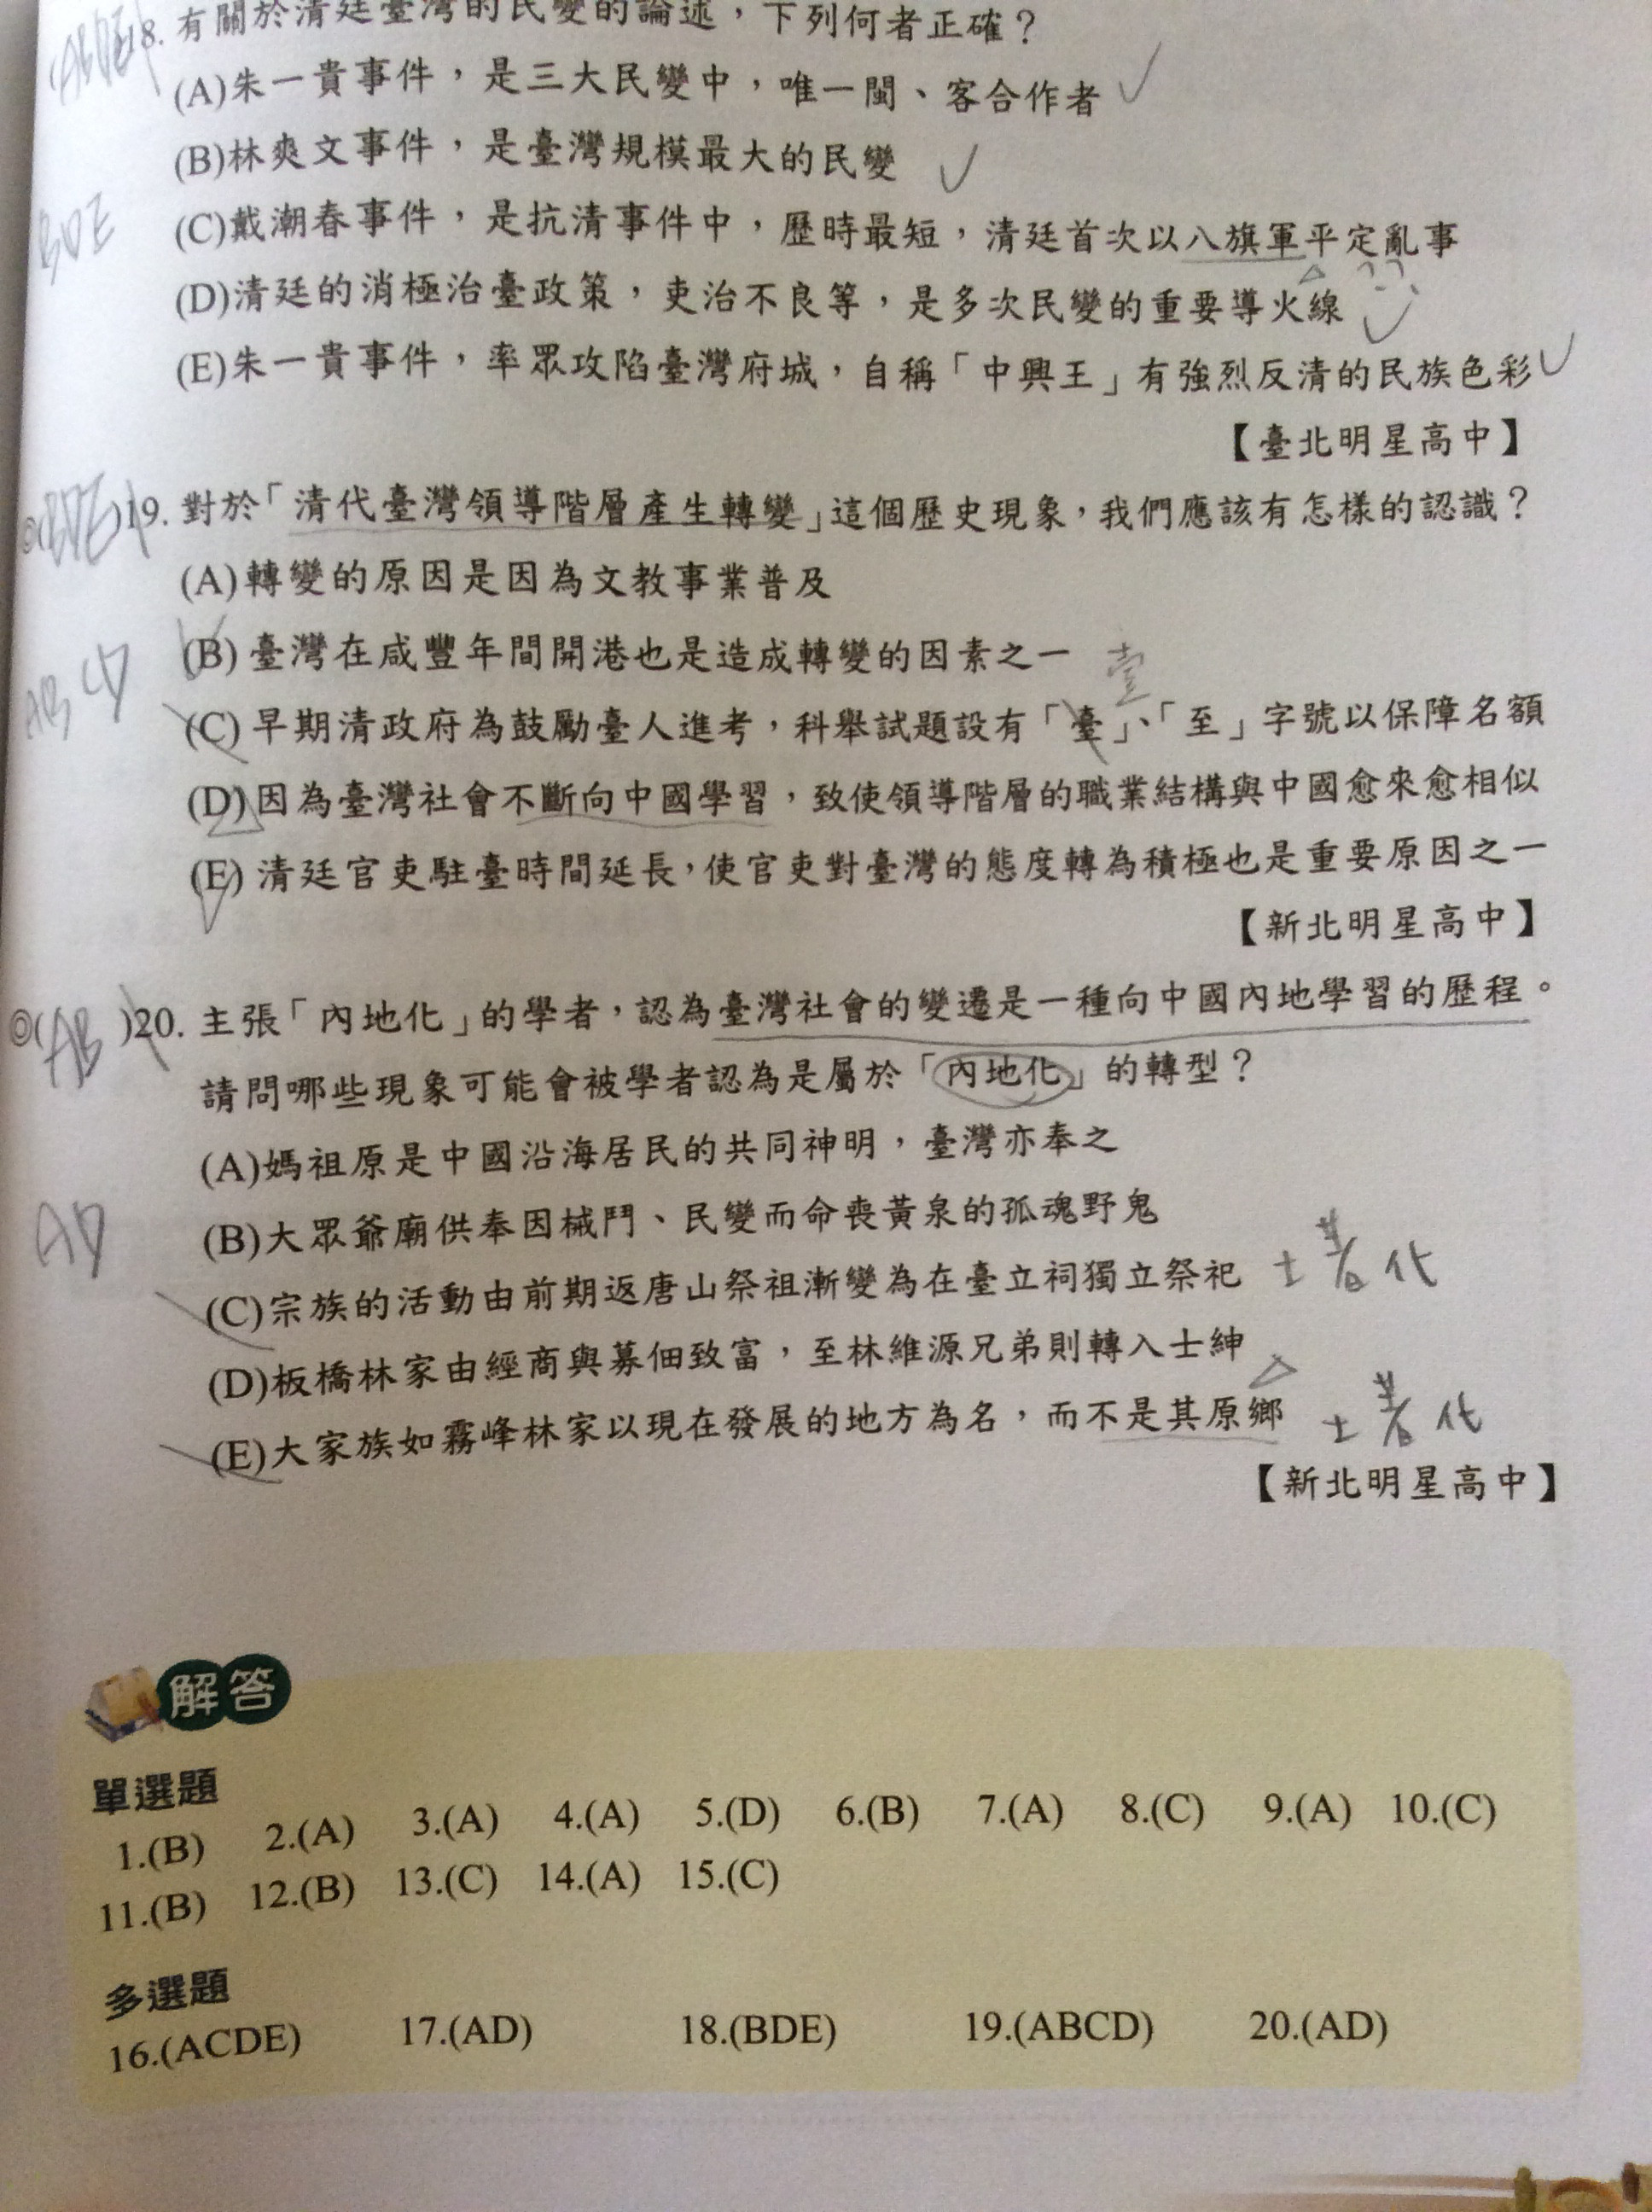 (ABDE)18. 有關於清廷臺灣的民變的論述，下列何者正確？
(A)朱一貴事件，是三大民變中，唯一閩、客合作者
(B)林爽文事件，是臺灣規模最大的民變
BDE
(C)戴潮春事件，是抗清事件中，歷時最短，清廷首次以八旗軍平定亂事
(D)清廷的消極治臺政策，吏治不良等，是多次民變的重要導火線
(E)朱一貴事件，率眾攻陷臺灣府城，自稱「中興王」有強烈反清的民族色彩
【臺北明星高中】
◎(BDE)19. 對於「清代臺灣領導階層產生轉變」這個歷史現象，我們應該有怎樣的認識？
(A)轉變的原因是因為文教事業普及
(B)臺灣在咸豐年間開港也是造成轉變的因素之一
壹
AB
(C)早期清政府為鼓勵臺人進考，科舉試題設有「臺」、「至」字號以保障名額
(D)因為臺灣社會不斷向中國學習，致使領導階層的職業結構與中國愈來愈相似
(E)清廷官吏駐臺時間延長，使官吏對臺灣的態度轉為積極也是重要原因之一
【新北明星高中】
◎(AB)20. 主張「內地化」的學者，認為臺灣社會的變遷是一種向中國內地學習的歷程。
請問哪些現象可能會被學者認為是屬於「內地化」的轉型？
(A)媽祖原是中國沿海居民的共同神明，臺灣亦奉之
(B)大眾爺廟供奉因械鬥、民變而命喪黃泉的孤魂野鬼
AD
(C)宗族的活動由前期返唐山祭祖漸變為在臺立祠獨立祭祀 土著化
(D)板橋林家由經商與募佃致富，至林維源兄弟則轉入士紳
(E)大家族如霧峰林家以現在發展的地方為名，而不是其原鄉 土著化
【新北明星高中】
解答
單選題
1.(B) 2.(A) 3.(A) 4.(A) 5.(D) 6.(B) 7.(A) 8.(C) 9.(A) 10.(C)
11.(B) 12.(B) 13.(C) 14.(A) 15.(C)
多選題
16.(ACDE) 17.(AD) 18.(BDE) 19.(ABCD) 20.(AD)